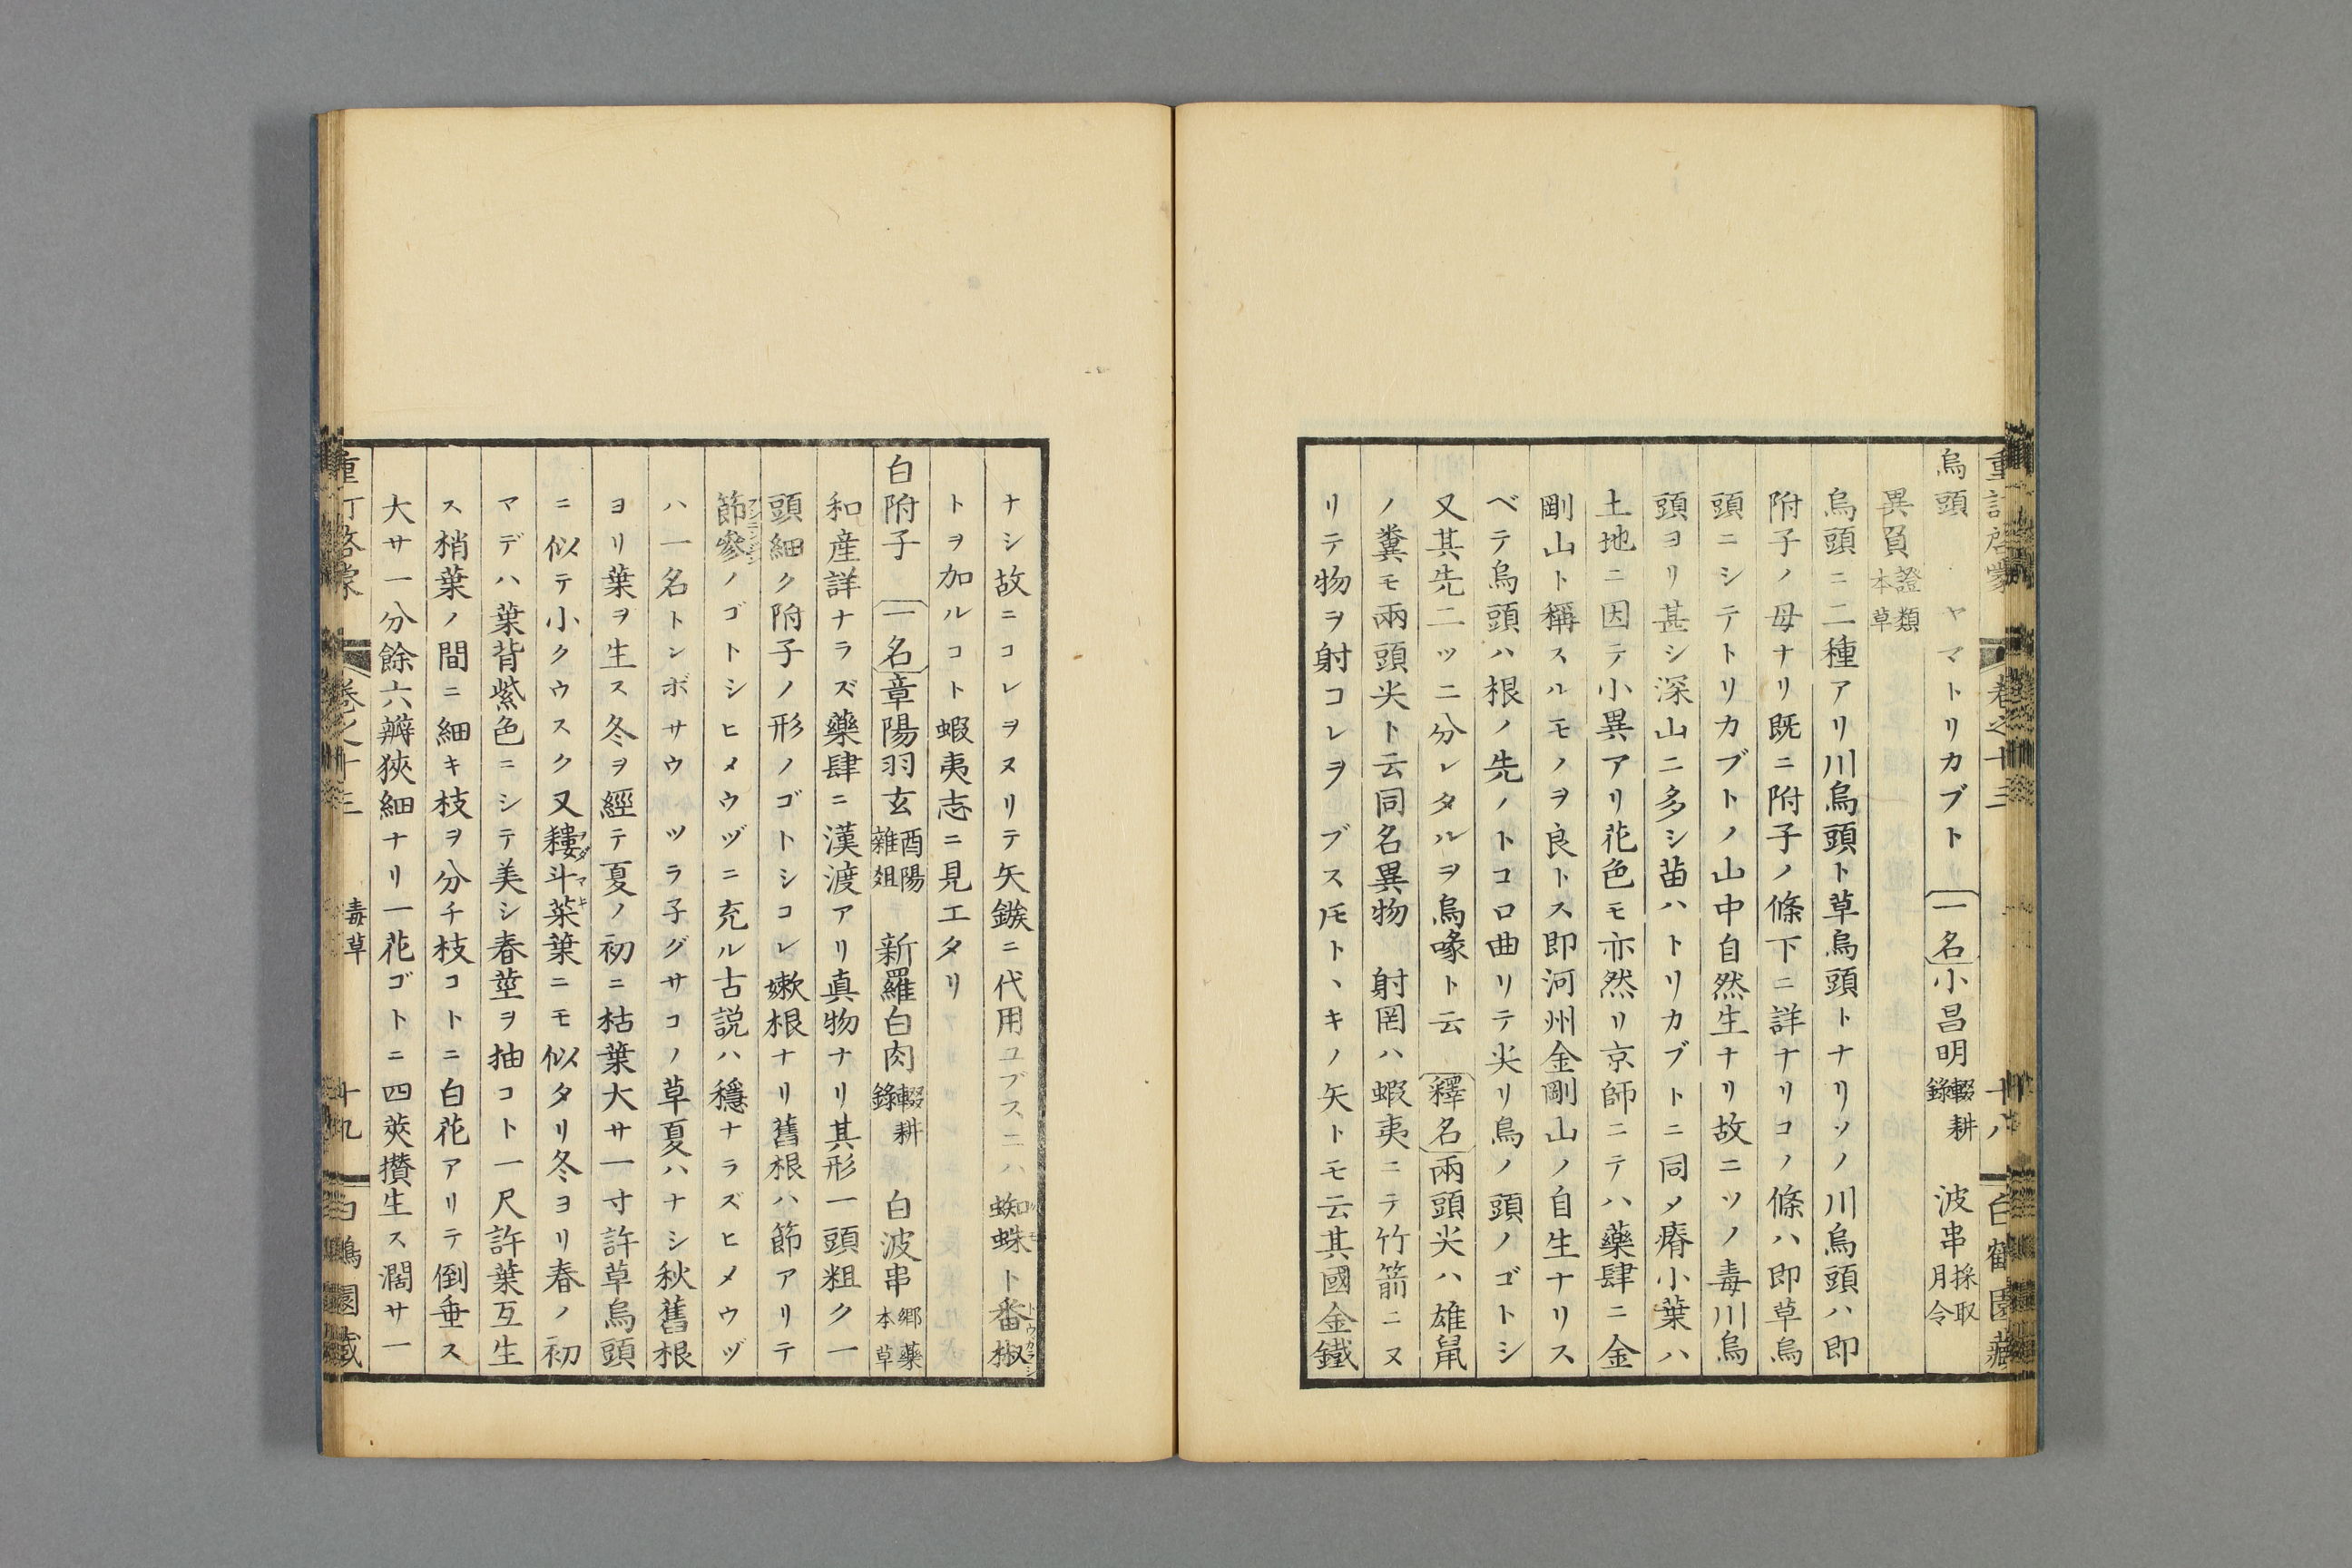 烏頭 ヤマトリカブト 一名小昌明輟耕錄 波串採取月令
異負證類本草
烏頭ニ二種アリ川烏頭ト草烏頭トナリソノ川烏頭ハ即
附子ノ母ナリ既ニ附子ノ條下ニ詳ナリコノ條ハ即草烏
頭ニシテトリカブトノ山中自然生ナリ故ニソノ毒川烏
頭ヨリ甚シ深山ニ多シ苗ハトリカブトニ同メ瘠小葉ハ
土地ニ因テ小異アリ花色モ亦然リ京師ニテハ藥肆ニ金
剛山ト稱スルモノヲ良トス即河州金剛山ノ自生ナリス
ベテ烏頭ハ根ノ先ノトコロ曲リテ尖リ鳥ノ頭ノゴトシ
又其先二ツニ分レタルヲ烏喙ト云 釋名兩頭尖ハ雄鼠
ノ糞モ兩頭尖ト云同名異物 射罔ハ蝦夷ニテ竹箭ニヌ
リテ物ヲ射コレヲブス𪜈トヽキノ矢トモ云其國金鐵
重訂啓蒙 卷之十三 十八 白鶴園藏
ナシ故ニコレヲヌリテ矢鏃ニ代用ユブスニハ蜘蛛ト番椒
トヲ加ルコト蝦夷志ニ見エタリ
白附子 一名章陽羽玄酉陽雜俎 新羅白肉輟耕錄 白波串郷藥本草
和産詳ナラズ藥肆ニ漢渡アリ真物ナリ其形一頭粗ク一
頭細ク附子ノ形ノゴトシコレ嫩根ナリ舊根ハ節アリテ
節參ノゴトシヒメウヅニ充ル古説ハ穩ナラズヒメウヅ
ハ一名トンボサウツラ子グサコノ草夏ハナシ秋舊根
ヨリ葉ヲ生ス冬ヲ經テ夏ノ初ニ枯葉大サ一寸許草烏頭
ニ似テ小クウスク又耬斗菜葉ニモ似タリ冬ヨリ春ノ初
マデハ葉背紫色ニシテ美シ春莖ヲ抽コト一尺許葉互生
ス梢葉ノ間ニ細キ枝ヲ分チ枝コトニ白花アリテ倒垂ス
大サ一分餘六瓣狹細ナリ一花ゴトニ四莢攢生ス濶サ一
重訂啓蒙 卷之十三 毒草 十九 白鶴園藏